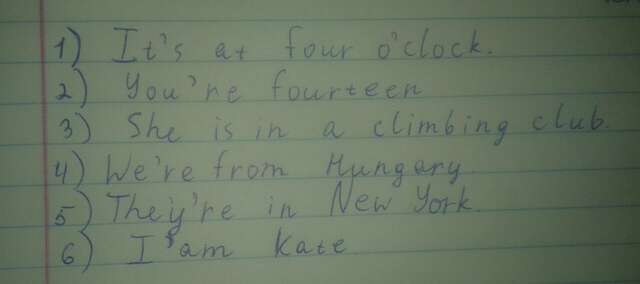 1) It's at four o'clock.
2) You're fourteen
3) She is in a climbing club.
4) We're from Hungary.
5) They're in New York.
6) I am Kate